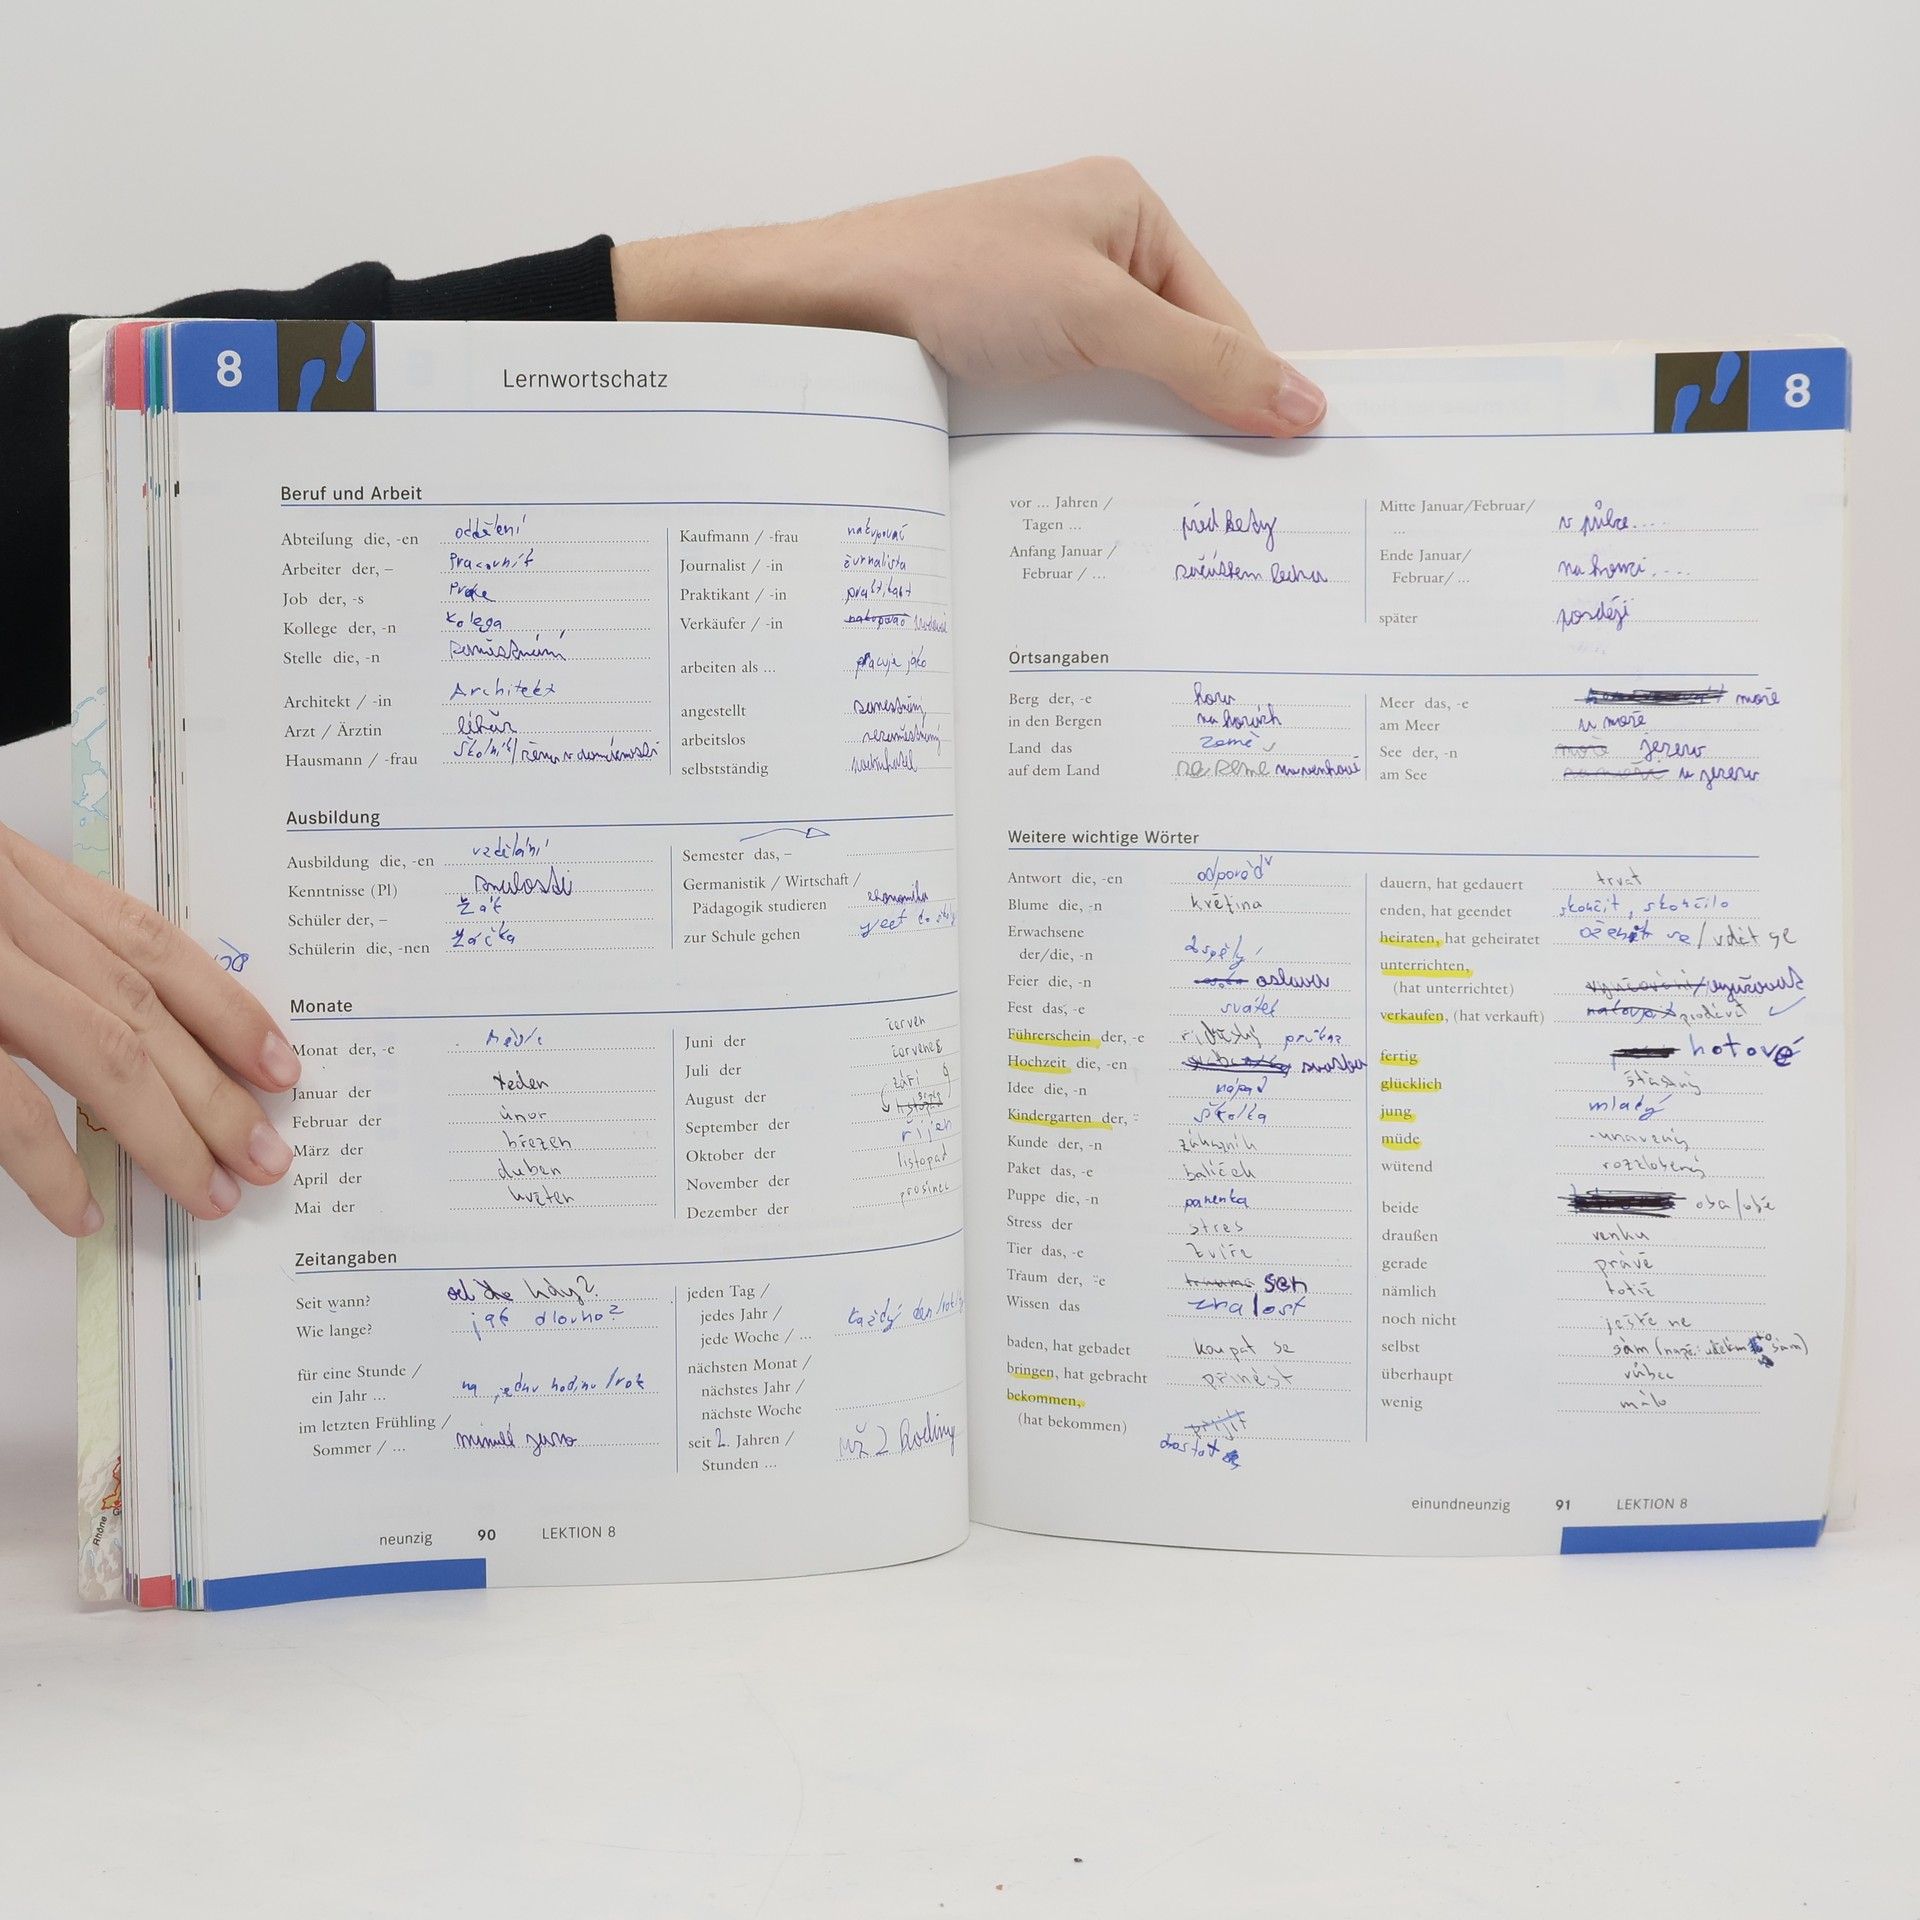 8
Lernwortschatz
Beruf und Arbeit
Abteilung die, -en oddělení
Arbeiter der, – Pracovník
Job der, -s Práce
Kollege der, -n kolega
Stelle die, -n zaměstnání
Architekt / -in Architekt
Arzt / Ärztin lékař
Hausmann / -frau školník/žena v domácnosti
Kaufmann / -frau nakupovač
Journalist / -in žurnalista
Praktikant / -in praktikant
Verkäufer / -in
arbeiten als ... pracuje jako
angestellt
arbeitslos
selbstständig
Ausbildung
Ausbildung die, -en vzdělání
Kenntnisse (Pl) znalosti
Schüler der, – žák
Schülerin die, -nen žáčka
Semester das, –
Germanistik / Wirtschaft /
Pädagogik studieren ekonomika
zur Schule gehen
Monate
Monat der, -e
Januar der
Februar der únor
März der březen
April der duben
Mai der květen
Juni der červen
Juli der
August der září
September der říjen
Oktober der listopad
November der prosinec
Dezember der
Zeitangaben
Seit wann? od kdy?
Wie lange? jak dlouho?
für eine Stunde /
ein Jahr ... na jednu hodinu/rok
im letzten Frühling /
Sommer / ... minulé jaro
jeden Tag /
jedes Jahr / každý den/rok/
jede Woche / ...
nächsten Monat /
nächstes Jahr /
nächste Woche
seit 2 Jahren / už 2 hodiny
Stunden ...
neunzig 90 LEKTION 8
8
vor ... Jahren /
Tagen ...
Anfang Januar /
Februar / ...
Mitte Januar/Februar/
... v půlce....
Ende Januar/
Februar/ ... na konci....
später později
Ortsangaben
Berg der, -e hora
in den Bergen na horách
Land das země
auf dem Land na venkově
Meer das, -e moře
am Meer u moře
See der, -n moře jezero
am See u jezera
Weitere wichtige Wörter
Antwort die, -en odpověď
Blume die, -n květina
Erwachsene
der/die, -n dospělý
Feier die, -n oslava
Fest das, -e svátek
Führerschein der, -e řidičský průkaz
Hochzeit die, -en svatba
Idee die, -n nápad
Kindergarten der, ¨ školka
Kunde der, -n zákazník
Paket das, -e balíček
Puppe die, -n panenka
Stress der stres
Tier das, -e zvíře
Traum der, ¨e trauma sen
Wissen das znalost
baden, hat gebadet koupat se
bringen, hat gebracht přinést
bekommen,
(hat bekommen) přijít
dostat
dauern, hat gedauert trvat
enden, hat geendet skončit, skončilo
heiraten, hat geheiratet oženit se/vdát se
unterrichten,
(hat unterrichtet) vyučování/vyučovat
verkaufen, (hat verkauft) prodávat
fertig hotové
glücklich šťastný
jung mladý
müde unavený
wütend rozzlobený
beide oba/obě
draußen venku
gerade právě
nämlich totiž
noch nicht ještě ne
selbst sám
überhaupt vůbec
wenig málo
einundneunzig 91 LEKTION 8
Rhône